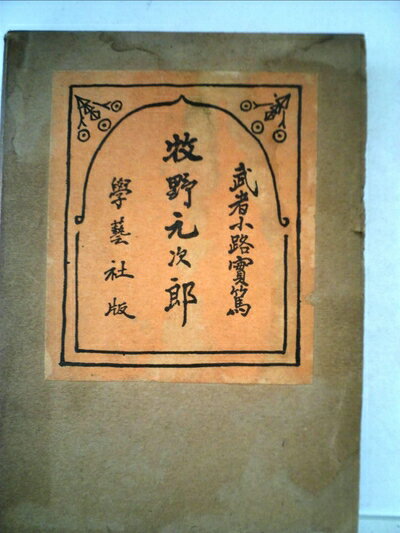 武者小路實篤
牧野元次郎
學藝社版